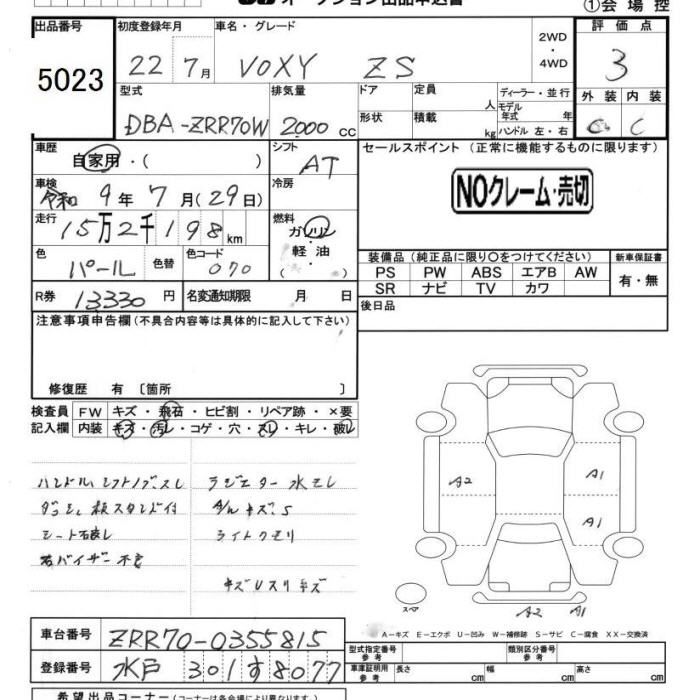 オークション出品申込書
①会場控
出品番号
5023
初度登録年月
22 7月
車名・グレード
VOXY ZS
2WD
・
4WD
評価点
3
外装 内装
C C
型式
DBA-ZRR70W
排気量
2000 cc
ドア
形状
定員
人
積載
kg
ディーラー・並行
モデル年式 年
ハンドル 左・右
車歴
自家用・( )
シフト
AT
車検
令和 9年 7月(29日)
冷房
走行
15万2千198km
燃料
ガソリン
・
軽油
( )
色
パール
色替
色コード
070
R券 13330円
名変通知期限 月 日
セールスポイント(正常に機能するものに限ります)
NOクレーム・売切
装備品(純正品に限り〇をつけてください)
新車保証書
PS PW ABS エアB AW
SR ナビ TV カワ
有・無
後日品
注意事項申告欄(不具合内容等は具体的に記入して下さい)
修復歴 有〔箇所 〕
検査員記入欄
FW キズ・飛石・ヒビ割・リペア跡・×要
内装 キズ・汚レ・コゲ・穴・スレ・キレ・破レ
ハンドル、シフトノブスレ
ラジエター水モレ
スタンド付
キズ、S
ライトクモリ
右バイザー不良
キズUスリキズ
A2
A1
A1
A2 A1
スペア
A-キズ E-エクボ U-凹み W-補修跡 S-サビ C-腐食 XX-交換済
車台番号
ZRR70-0355815
登録番号
水戸 301 す 8077
型式指定番号
参考
類別区分番号
参考
車庫証明用
参考
長さ cm 幅 cm 高さ cm
希望出品コーナー(コーナーは各会場により異なります)